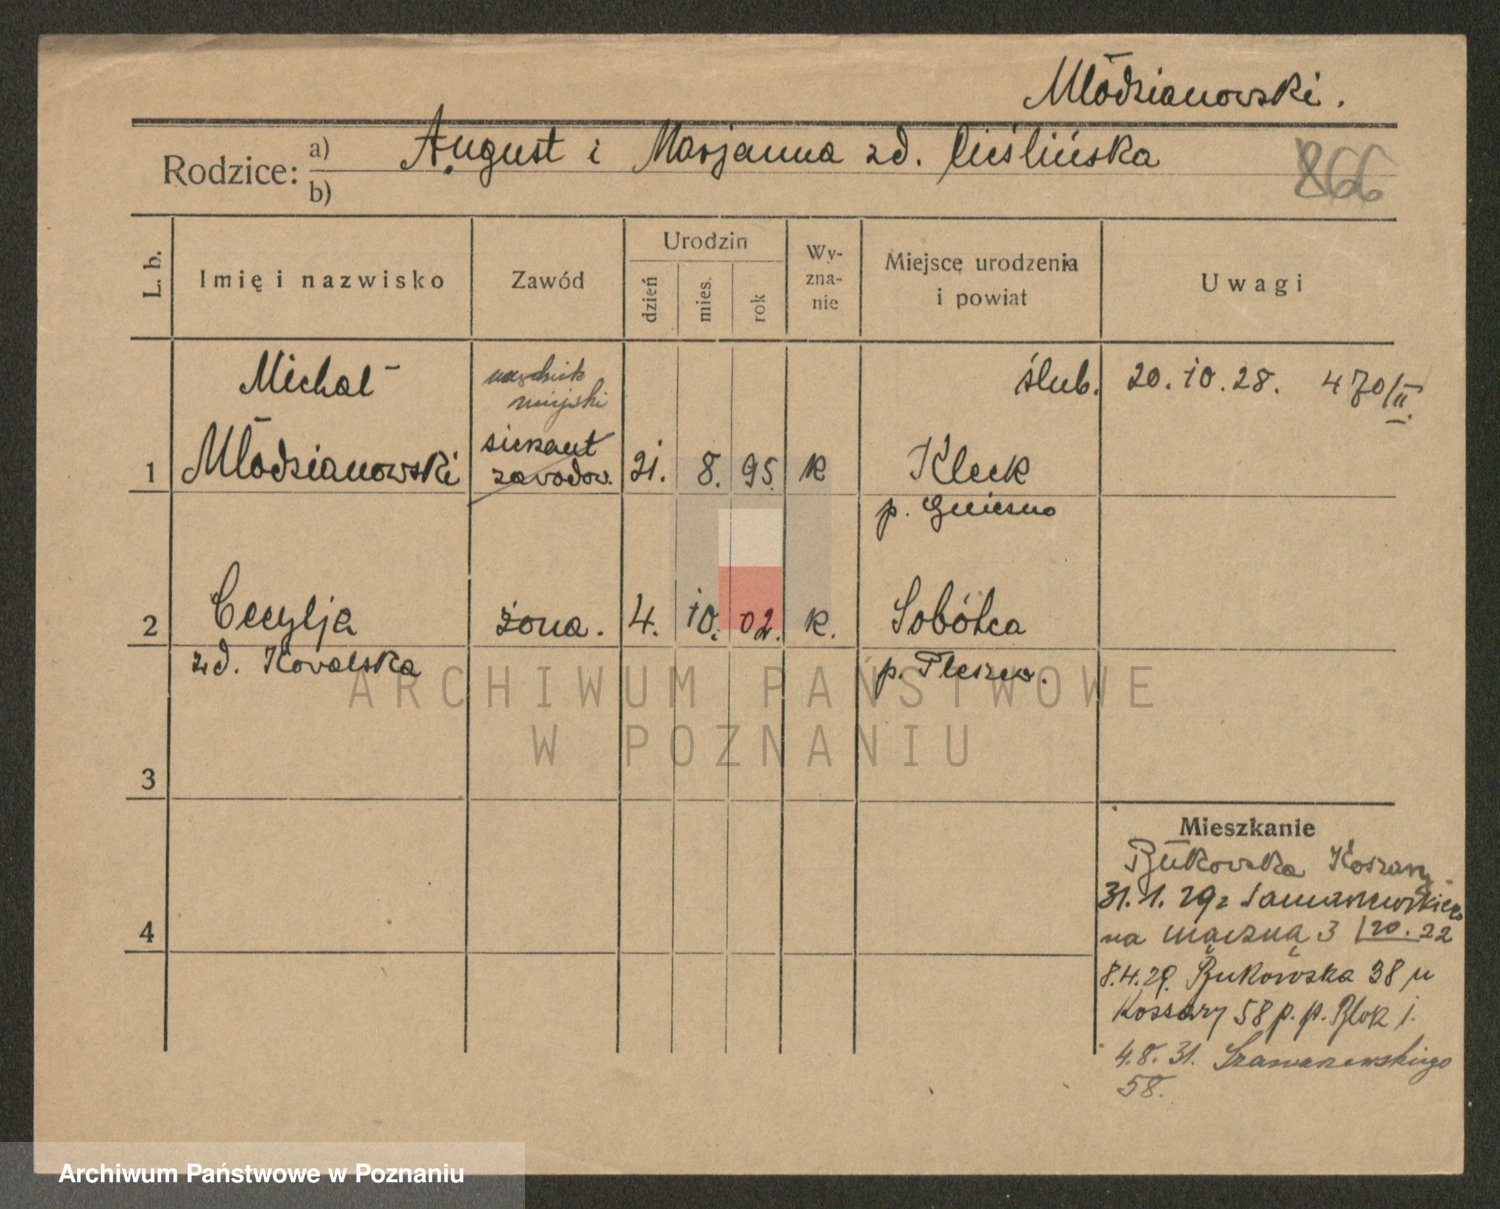 Młodzianowski.
Rodzice: a) August i Marjanna zd. Cieślińska
b)
866
L. b.
Imię i nazwisko
Zawód
Urodzin
dzień
mies.
rok
Wy-
zna-
nie
Miejsce urodzenia
i powiat
Uwagi
Michał
miejski
ślub. 20.10.28. 470/II.
1 Młodzianowski
sierżant
zawodow.
21. 8. 95. k
Kleck
p. Gniezno
2 Cecylja żona. 4. 10. 02. k. Sobótka
zd. Kowalska p. Pleszew.
ARCHIWUM PAŃSTWOWE
W POZNANIU
3
4
Mieszkanie
Bukowska Koszary
31.1.29
na mączną 3 20.22
8.4.29. Bukowska 38
Koszary 58 p. p. Blok 1.
4.8.31. Szamarzewskiego
58.
Archiwum Państwowe w Poznaniu